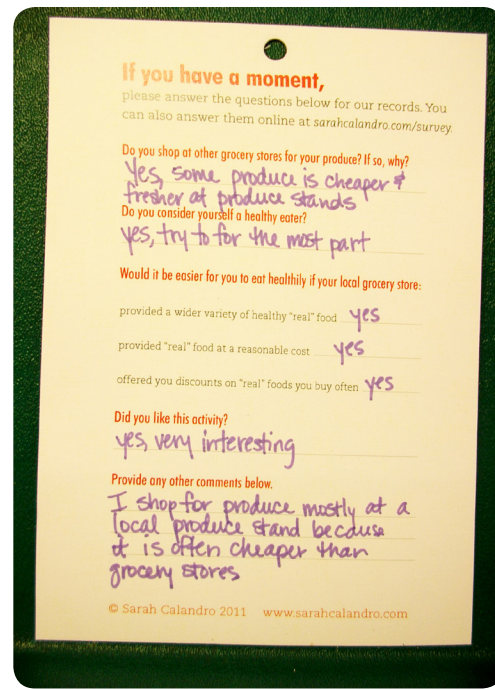 If you have a moment,
please answer the questions below for our records. You
can also answer them online at sarahcalandro.com/survey.
Do you shop at other grocery stores for your produce? If so, why?
Yes, some produce is cheaper &
fresher at produce stands
Do you consider yourself a healthy eater?
yes, try to for the most part
Would it be easier for you to eat healthily if your local grocery store:
provided a wider variety of healthy "real" food yes
provided "real" food at a reasonable cost yes
offered you discounts on "real" foods you buy often yes
Did you like this activity?
yes, very interesting
Provide any other comments below.
I shop for produce mostly at a
local produce stand because
it is often cheaper than
grocery stores
© Sarah Calandro 2011 www.sarahcalandro.com